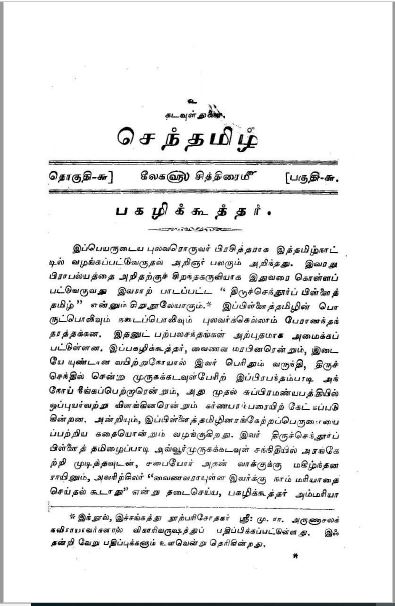 உ
கடவுள் துணை.
செந்தமிழ்
தொகுதி-சு] கீலகஹு சித்திரைமீ [பகுதி-சு.
பகழிக்கூத்தர்.
இப்பெயருடைய புலவரொருவர் பிரசித்தராக இத்தமிழ்நாட்
டில் வழங்கப்பட்டுவருதல் அறிஞர் பலரும் அறிந்தது. இவரது
பிராபல்யத்தை அறிதற்குச் சிறந்தகருவியாக இதுவரை கொள்ளப்
பட்டுவருவது இவராற் பாடப்பட்ட "திருச்செந்தூர்ப் பிள்ளைத்
தமிழ்" என்னும் சிறுநூலேயாகும்.* இப்பிள்ளைத்தமிழின் பொ
ருட்பொலிவும் நடைப்பொலிவும் புலவர்க்கெல்லாம் பேரானந்தந்
தரத்தக்கன. இதனுட் பற்பலசந்தங்கள் அற்புதமாக அமைக்கப்
பட்டுள்ளன. இப்பகழிக்கூத்தர், வைணவ மரபினரென்றும், இடை
யே யுண்டான வயிற்றுநோயால் இவர் பெரிதும் வருந்தி, திருச்
செந்தில் சென்று முருகக்கடவுள்பேரிற் இப்பிரபந்தம்பாடி அந்
நோய் நீங்கப்பெற்றாரென்றும், அது முதல் சுப்பிரமண்யபத்தியில்
ஒப்புயர்வற்று விளங்கினரென்றும் கர்ணபரம்பரையிற் கேட்கப்படு
கின்றன. அன்றியும், இப்பிள்ளைத்தமிழினரங்கேற்றப்பெருமையை
ப்பற்றிய கதையொன்றும் வழங்குகிறது. இவர் திருச்செந்தூர்ப்
பிள்ளைத் தமிழைப்பாடி அவ்வூர்முருகக்கடவுள் சந்நிதியில் அரங்கே
ற்றி முடித்தவுடன், சபையோர் அதன் வாக்குக்கு மகிழ்ந்தன
ராயினும், அவரிற்சிலர் "வைணவராயுள்ள இவர்க்கு நாம் மரியாதை
செய்தல் கூடாது" என்று தடைசெய்ய, பகழிக்கூத்தர் அம்மரியா
* இந்நூல், இச்சங்கத்து நூற்பரிசோதகர் ஸ்ரீ மு. ரா. அருணாசலக்
கவிராயரவர்களால் விகாரிவருஷத்துப் பதிப்பிக்கப்பட்டுள்ளது. இஃ
தன்றி வேறு பதிப்புக்களும் உளவென்று தெரிகின்றது.
*